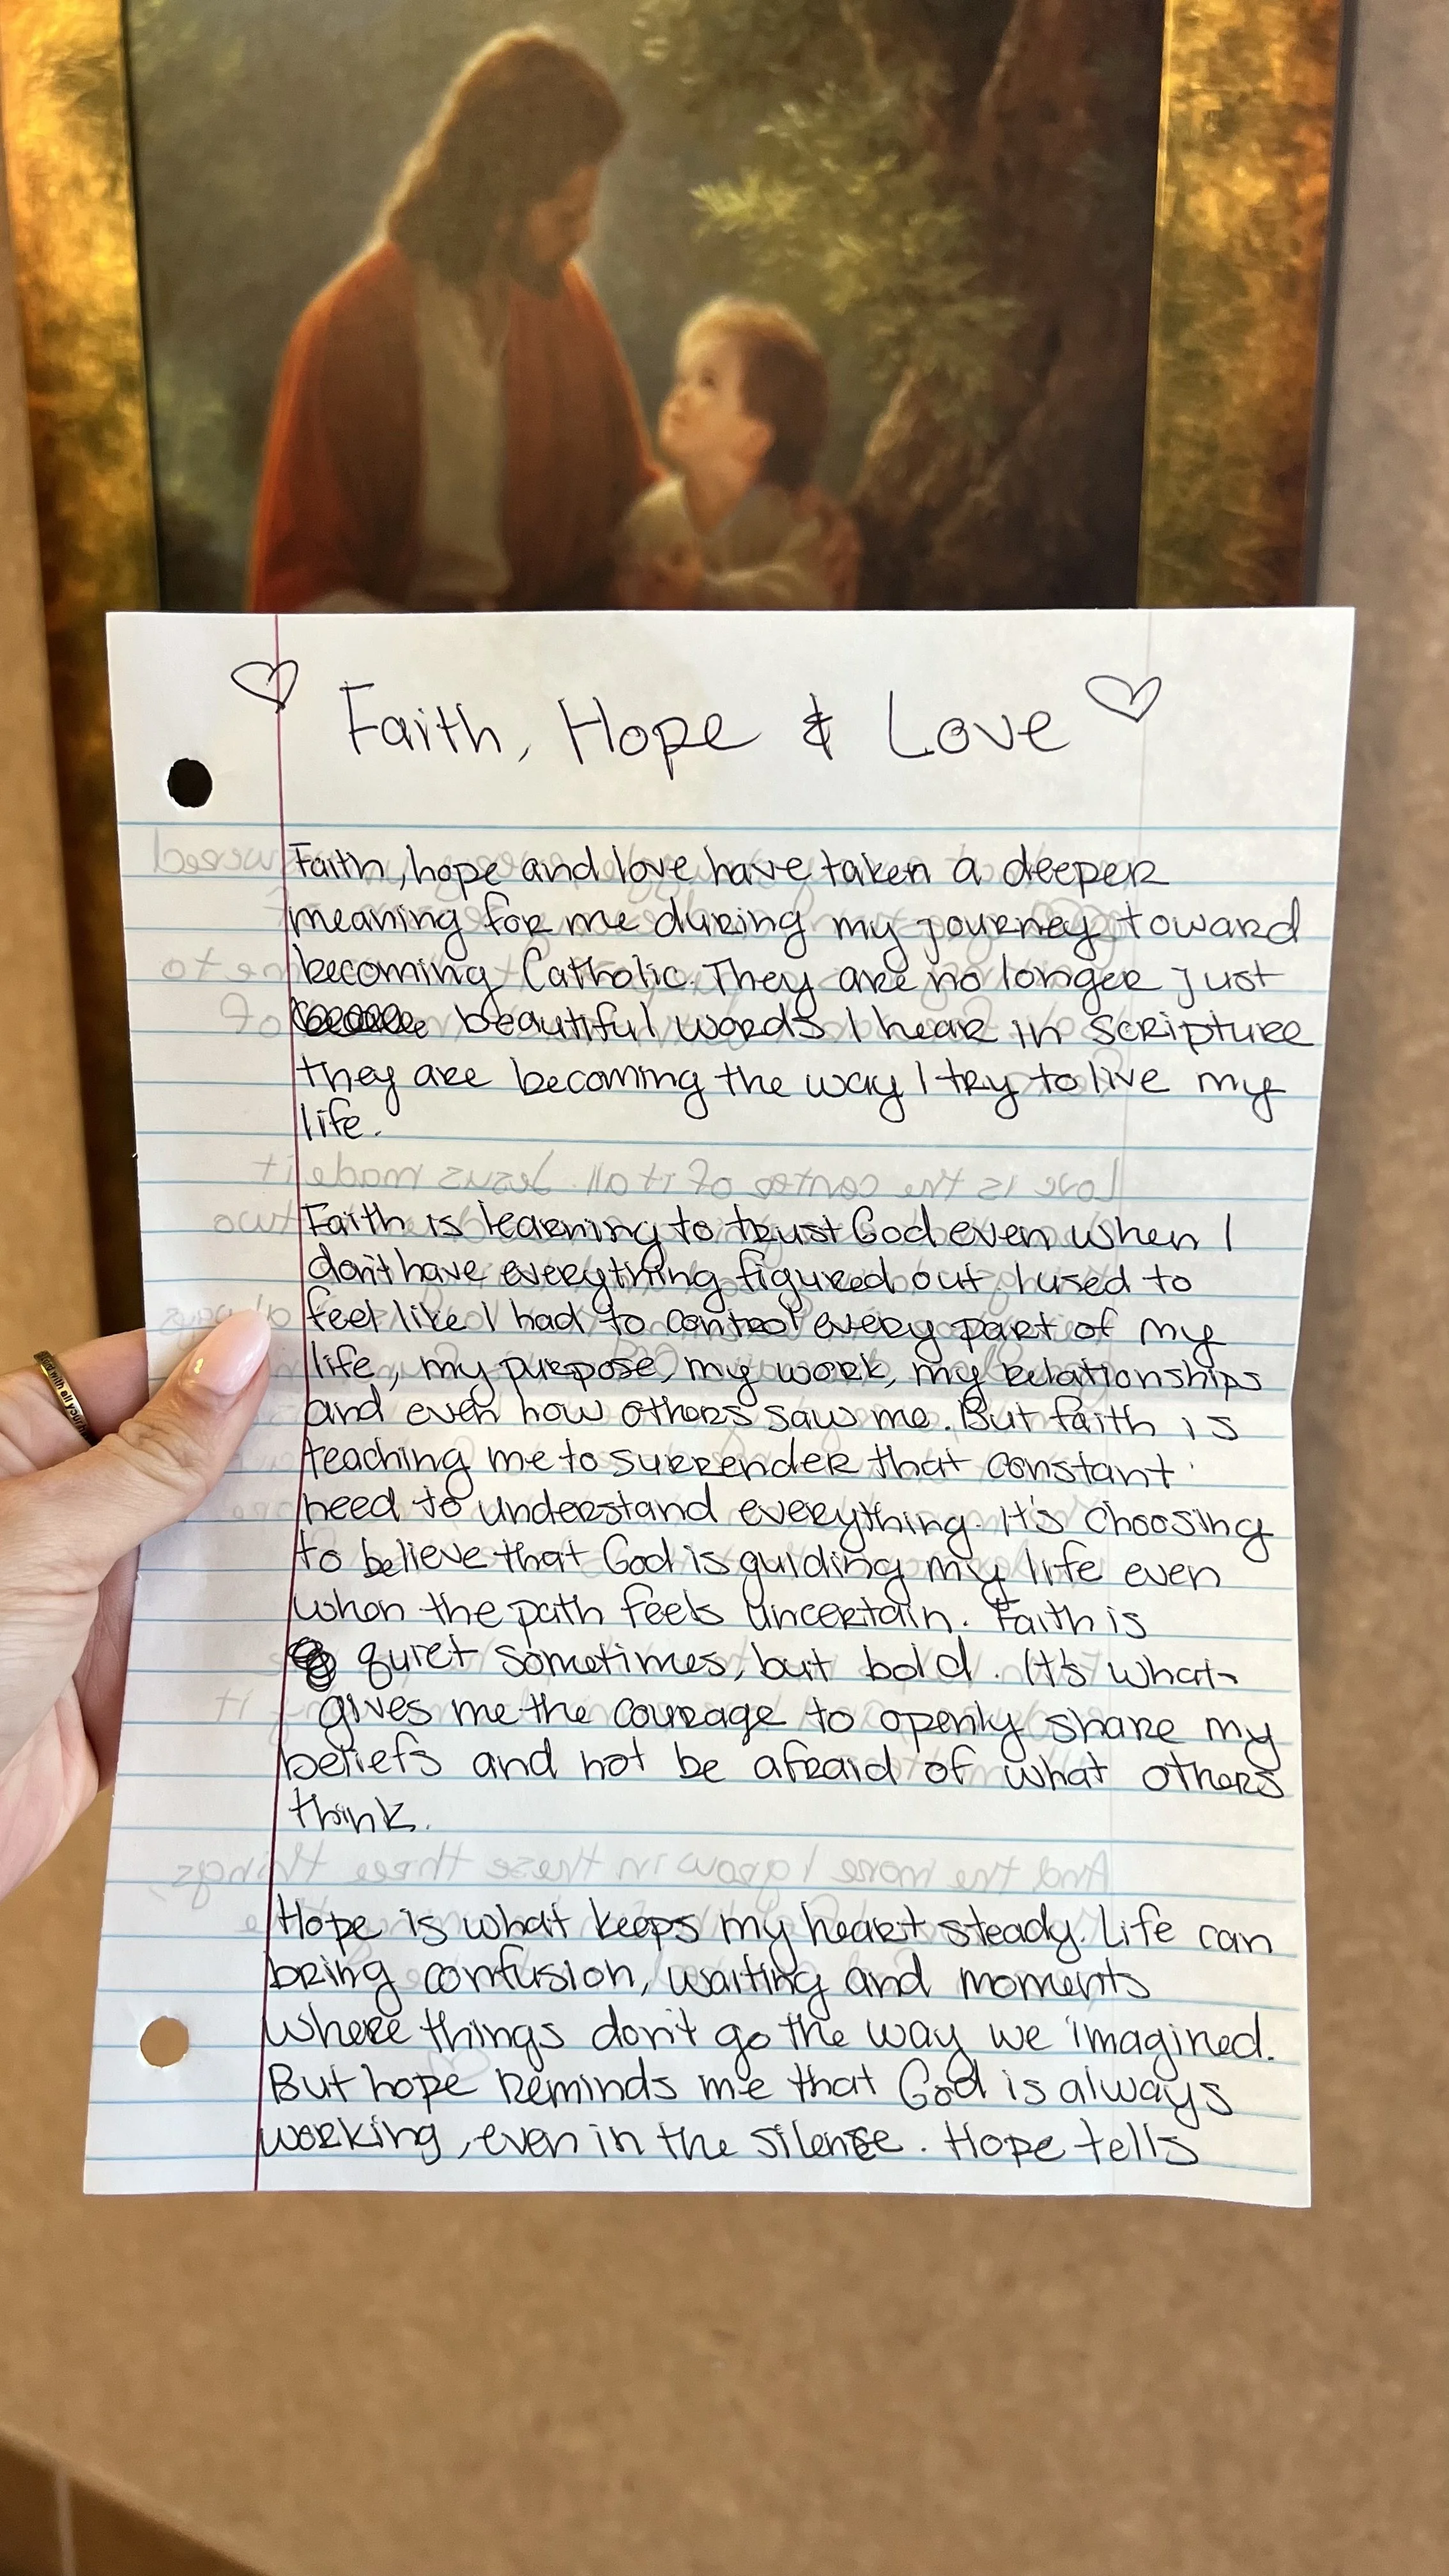 ♡ Faith, Hope & Love ♡
Faith, hope and love have taken a deeper
meaning for me during my journey toward
becoming Catholic. They are no longer just
beautiful words I hear in scripture
they are becoming the way I try to live my
life.
Love is the center of it all. Jesus made it
Faith is learning to trust God even when I
don't have everything figured out. I used to
feel like I had to control every part of my
life, my purpose, my work, my relationships
and even how others saw me. But faith is
teaching me to surrender that constant
need to understand everything. It's choosing
to believe that God is guiding my life even
when the path feels uncertain. Faith is
quiet sometimes, but bold. It's what
gives me the courage to openly share my
beliefs and not be afraid of what others
think.
And the more I grow in these three things,
Hope is what keeps my heart steady. Life can
bring confusion, waiting and moments
where things don't go the way we imagined.
But hope reminds me that God is always
working, even in the silence. Hope tells
with all your